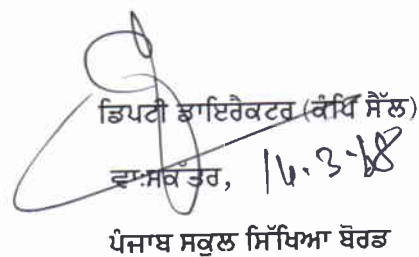 ਡਿਪਟੀ ਡਾਇਰੈਕਟਰ (ਕੰਪਿ ਸੈੱਲ)
ਵਾ:ਸਕੱਤਰ,
ਪੰਜਾਬ ਸਕੂਲ ਸਿੱਖਿਆ ਬੋਰਡ